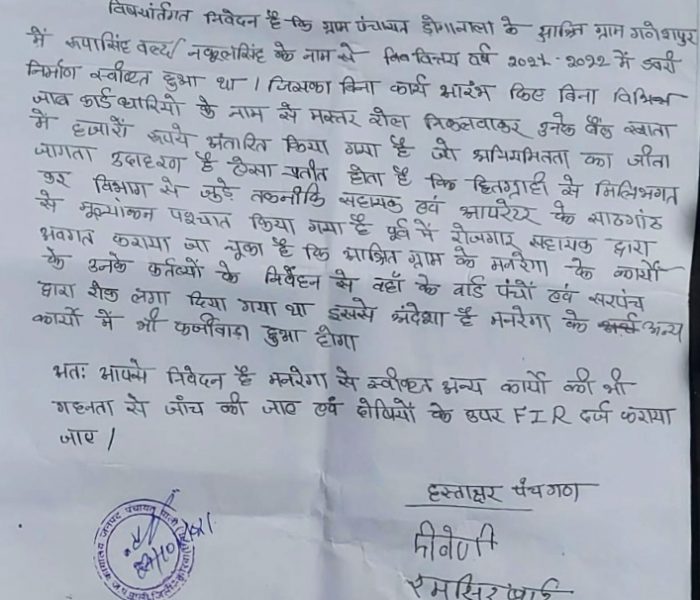 विषयांर्तगत निवेदन है कि ग्राम पंचायत डोंगानाला के आश्रित ग्राम गणेशपुर
में रूपासिंह वल्द/ नकुलसिंह के नाम से वित्तीय वर्ष 2021-2022 में डबरी
निर्माण स्वीकृत हुआ था । जिसका बिना कार्य प्रारंभ किए बिना विभिन्न
जाब कार्ड धारियो के नाम से मस्टर रोल निकलवाकर उनके बैंक खाता
में हजारों रूपये अंतरित किया गया है जो अनियमितता का जीता
जागता उदाहरण है ऐसा प्रतीत होता है कि हितग्राही से मिलिभगत
कर विभाग से जुड़े तकनीकि सहायक एवं आपरेटर के साठगांठ
से मूल्यांकन पश्चात किया गया है पूर्व में रोजगार सहायक द्वारा
अवगत कराया जा चूका है कि आश्रित ग्राम के मनरेगा के कार्यो
के उनके कर्तव्यों के निर्वहन से वहाँ के वार्ड पंचों एवं सरपंच
द्वारा रोक लगा दिया गया था इससे अंदेशा है मनरेगा के अन्य
कार्यो में भी फर्जीवाड़ा हुआ होगा
अतः आपसे निवेदन है मनरेगा से स्वीकृत अन्य कार्यो की भी
गहनता से जांच की जाए एवं दोषियों के उपर FIR दर्ज कराया
जाए ।
हस्ताक्षर पंचगण